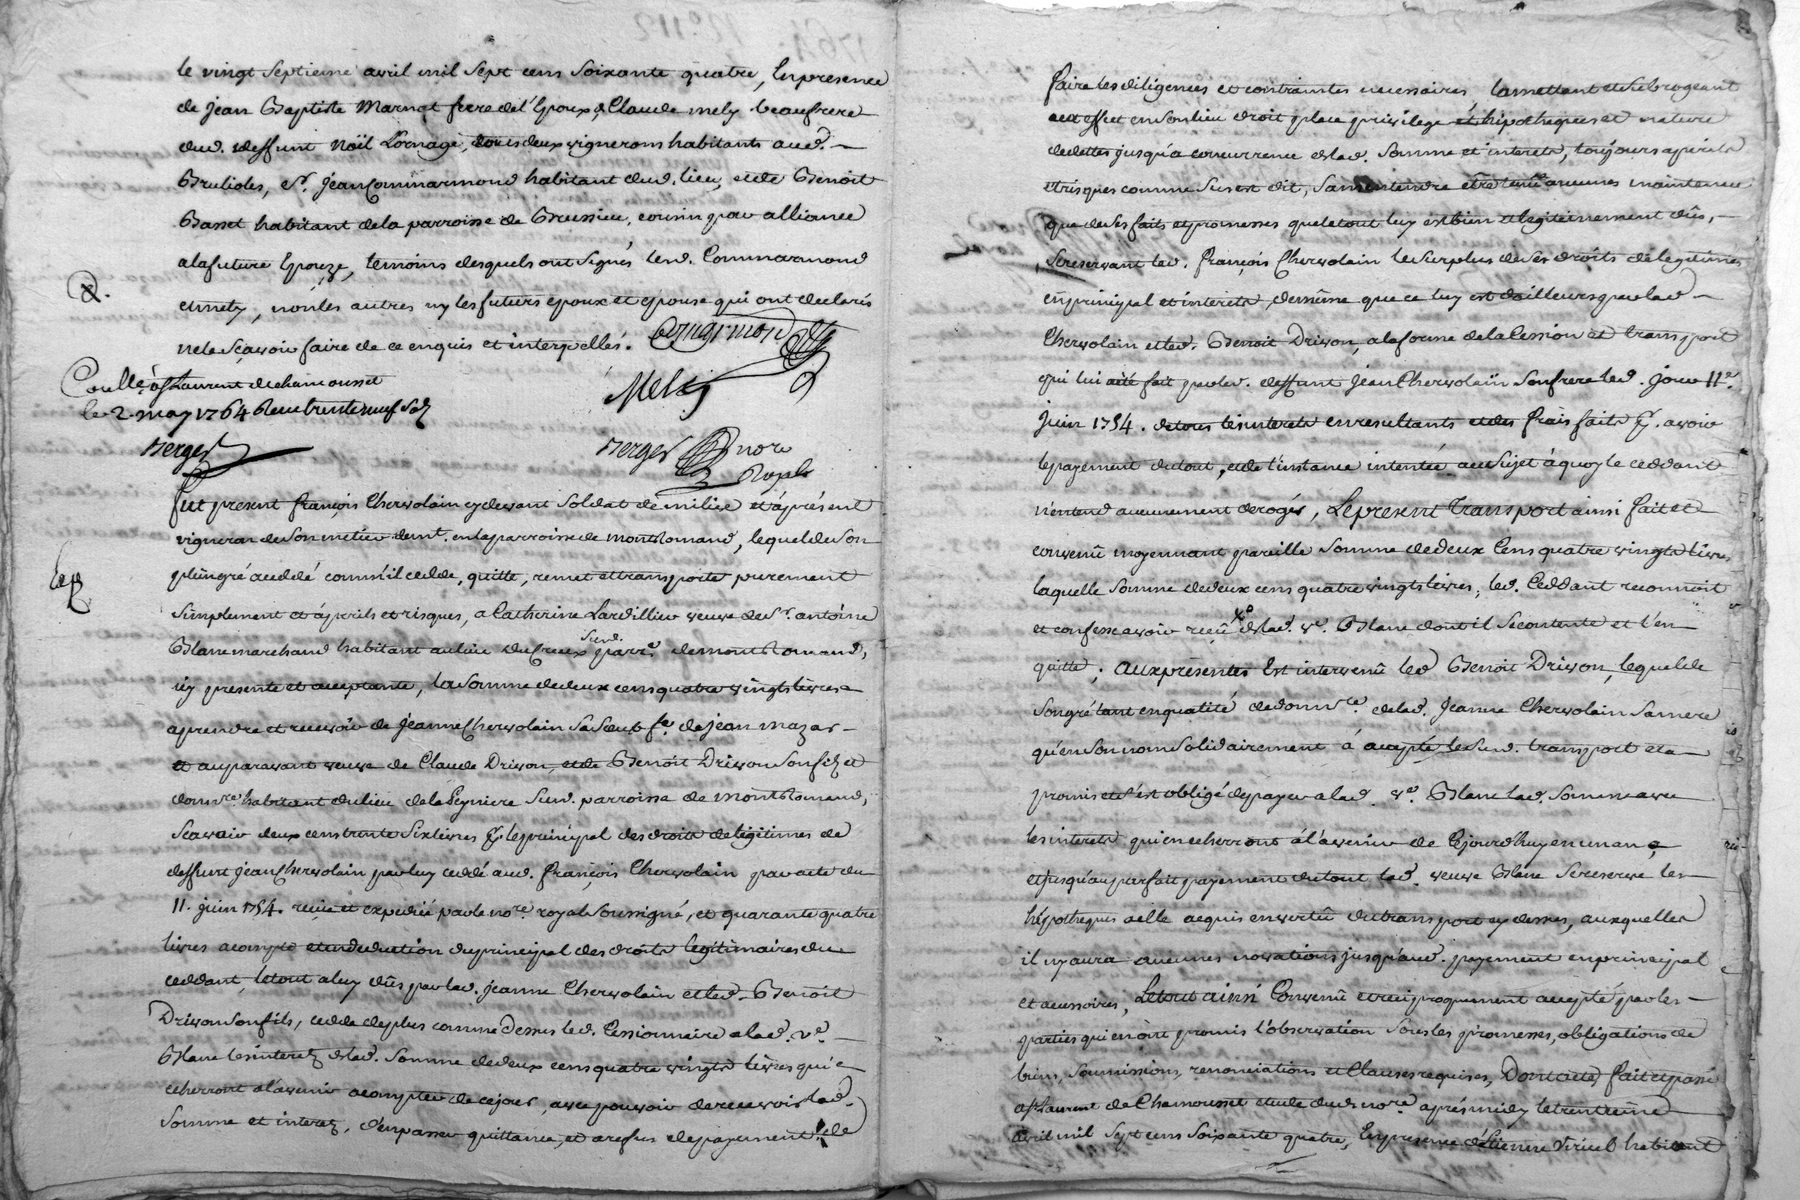 le vingt septieme avril mil sept cens soixante quatre, En presence
de Jean Baptiste Marnat frere de l'Epoux, & Claude mely beaufrere
dud. deffunt Noël Lornage, tous deux vignerons habitants aud.
Brulioles, Sr. Jean Commarmond habitant dud. lieu, et de Benoit
Basset habitant de la parroisse de Brussieu, cousin par alliance
a la future Epouze, temoins desquels ont signés led. Commarmond
et mely, non les autres ny les futurs epoux et epouse qui ont declarés
ne le sçavoir faire de ce enquis et interpellés. Commarmond
Coullé à St Laurent de chamousset
le 2. may 1764 Reçu trente neuf sols
Mely
Berger
Berger nore
Royal
fut present françois Chervolain cy devant soldat de milice et àprésent
vigneron de son métier demt. en la parroisse de montromand, lequel de son
plein gré a cédé comm'il cedde, quitte, remet et transporte purement
simplement et à perils et risques, a Catherine Lardillier veuve de Sr. antoine
Blanc marchand habitant au lieu du Creux susd. parre. de montromand,
icy presente et acceptante, la somme de deux cens quatre vingts livres
a prendre et recevoir de Jeanne Chervolain sa sœur fe. de jean mazar
et auparavant veuve de Claude Drivon, et de Benoit Drivon son fils et
donre. habitant du lieu de la Peyniere susd. parroisse de montromand,
Scavoir deux cens trente six livres pr. le principal des droits de légitimes de
deffunt jean Chervolain par luy cedé aud. françois Chervolain par acte du
11. juin 1754. reçu et expedié par le nore. royal soussigné, et quarante quatre
livres a compte et en deduction du principal des droits légitimaires du
ceddant, le tout a luy dûs par lad. jeanne Chervolain et led. Benoit
Drivon son fils, cedde de plus comme dessus led. Cessionnaire a lad. ve.
Blanc les interetz de lad. somme de deux cens quatre vingts livres qui
echerront à l'avenir a compter de ce jour, avec pouvoir de recevoir lad.
somme et interetz, d'en passer quittance, et a refus de payement de
faire les diligences et contraintes necessaires, la mettant et subrogeant
a cet effet en son lieu droit place privilege et hipotheques et nature
de dettes jusqu'a concurrence de lad. somme et interets, toujours a perils
et risques comme sus est dit, sans entendre être tenu a aucunes maintenue
que de ses faits et promesses que le tout luy est bien et legitimement dûs,
se reservant led. françois Chervolain le surplus de ses droits de legitimes
en principal et interets, de même que ce luy est d'ailleurs par lad.
Chervolain et led. Benoit Drivon, a la forme de la Cession et transport
qui lui a été fait par led. deffunt Jean Chervolain son frere led. jour 11e.
juin 1754. de tous les interets en resultants et des frais faits pr. avoir
le payement du tout, et de l'instance intentée au sujet à quoy le ceddant
n'entend aucunement derogés, Le present Transport ainsi fait et
convenû moyennant pareille somme de deux Cens quatre vingts livres
laquelle somme de deux cens quatre vingts livres, led. Ceddant reconnoit
et confesse avoir reçû de lad. ve. Blanc dont il se contente et l'en
quitte; aux présentes Est intervenû led Benoit Drivon, lequel de
son gré tant en qualité de donre. de lad. Jeanne Chervolain sa mere
qu'en son nom solidairement à accepté le susd. transport et a
promis et s'est obligé de payer a lad. ve. Blanc lad. somme avec
les interets qui en echerront à l'avenir de cejourd'huy en un an
et jusqu'au parfait payement du tout lad. veuve Blanc se reserve les
hipotheques a elle acquis en vertû du transport cy dessus, auxquelles
il n'y aura aucunes novations jusqu'aud. payement en principal
et accessoires, Le tout ainsi Convenû et reciproquement accepté par les
parties qui en ont promis l'observation sous les promesses, obligations de
biens, soumissions, renonciations et Clauses requises, Dont acte, fait et passé
a St Laurent de Chamousset etude dud. nore. après midy le trentieme
avril mil sept cens soixante quatre, En presence d'Etienne Viricel habitant